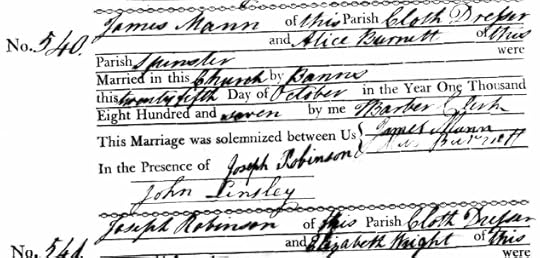 James Mann of this Parish Cloth Dresser
No. 540. and Alice Burnett of this
Parish Spinster were
Married in this Church by Banns
this twenty fifth Day of October in the Year One Thousand
Eight Hundred and seven by me Barber Clerk
This Marriage was solemnized between Us { James Mann
Burnett
In the Presence of Joseph Robinson
John Linsley
Joseph Robinson of this Parish Cloth Dresser
No. 541. and Elizabeth Wright of this
were